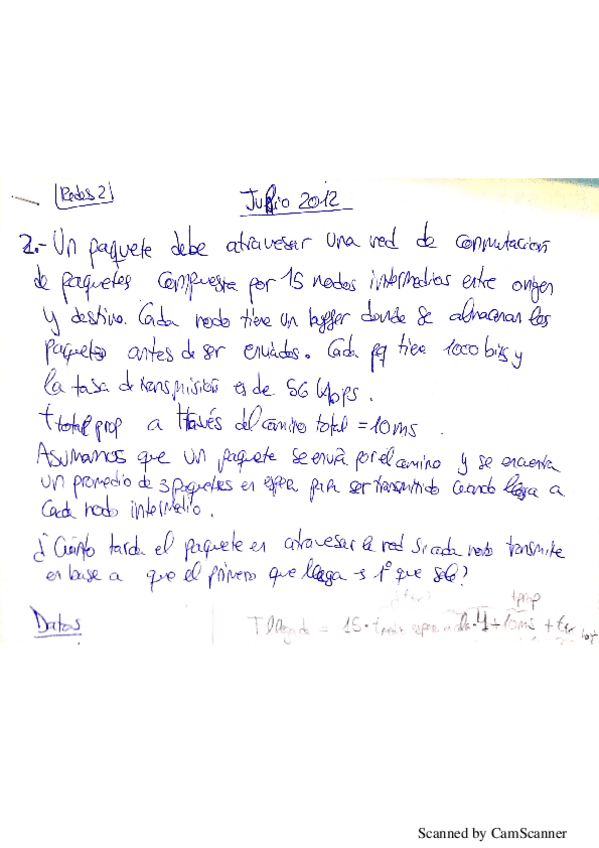 [Redes 2]
Junio 2012
2.- Un paquete debe atravesar una red de conmutacion
de paquetes compuesta por 15 nodos intermedios entre origen
y destino. Cada nodo tiene un buffer donde se almacenan los
paquetes antes de ser enviados. Cada pq tiene 1000 bits y
la tasa de transmisión es de 56 Kbps.
t total prop a través del camino total = 10ms.
Asumamos que un paquete se envía por el camino y se encuentra
un promedio de 3 paquetes en espera para ser transmitido cuando llega a
cada nodo intermedio.
¿Cuánto tarda el paquete en atravesar la red si cada nodo transmite
en base a que el primero que llega es 1º que sale?
tprop
Datos
T llegada = 15 · 4 + 10ms + ttr
Scanned by CamScanner